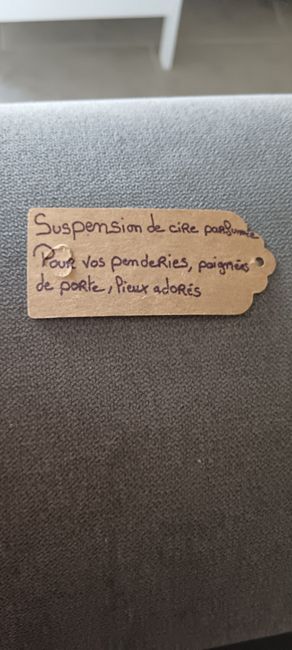 Suspension de cire parfumée
Pour vos penderies, poignées
de porte, lieux adorés